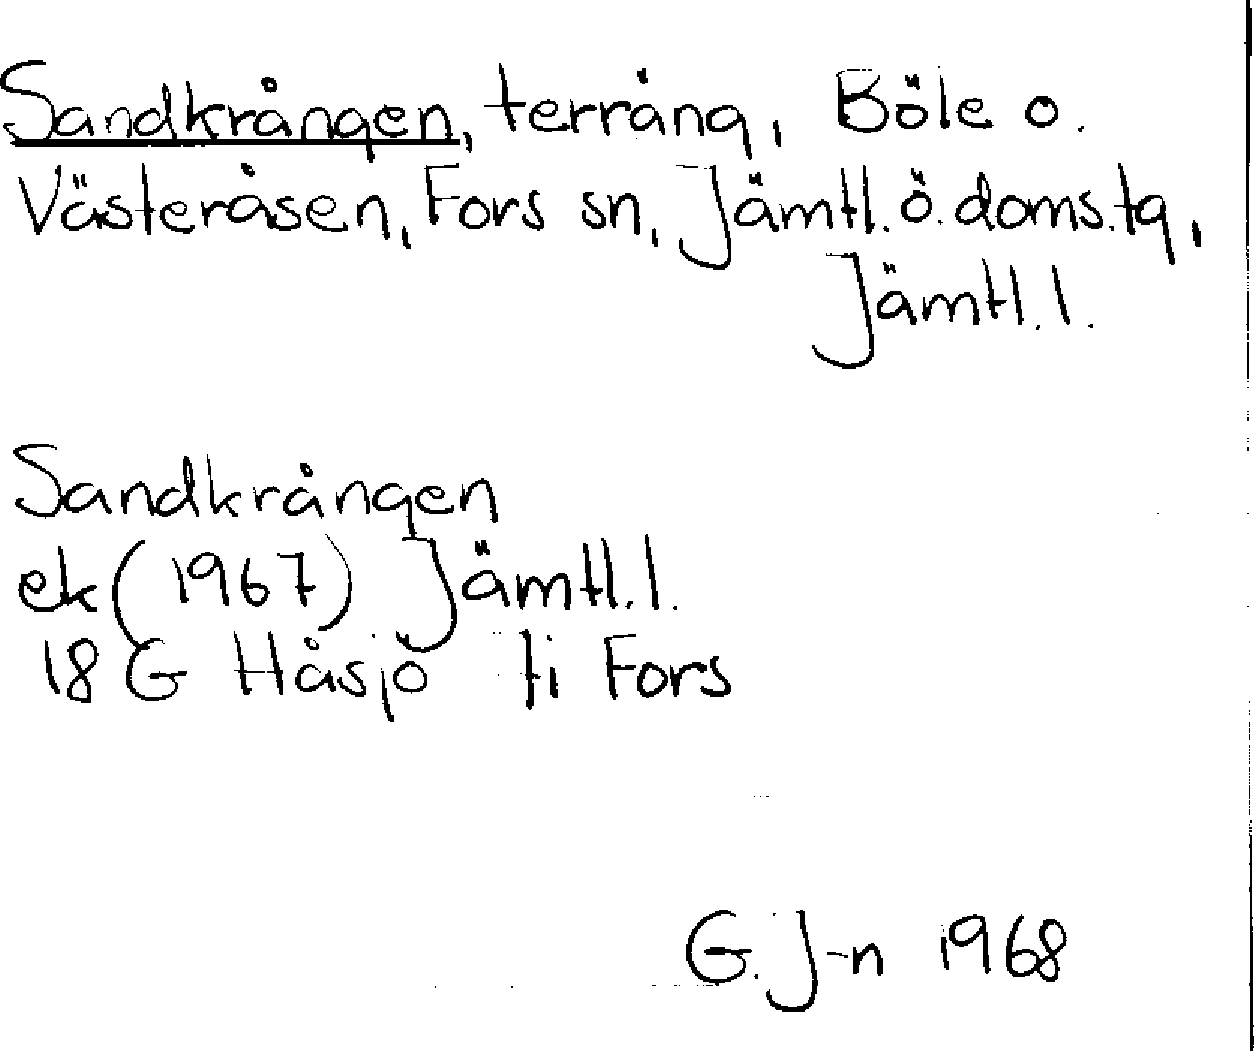 Sandkrången, terräng, Böle o.
Västeråsen, Fors sn, Jämtl. ö. doms. tg,
Jämtl. l.
Sandkrången
ek (1967) Jämtl. l.
18 G Håsjö ti Fors
G. J-n 1968